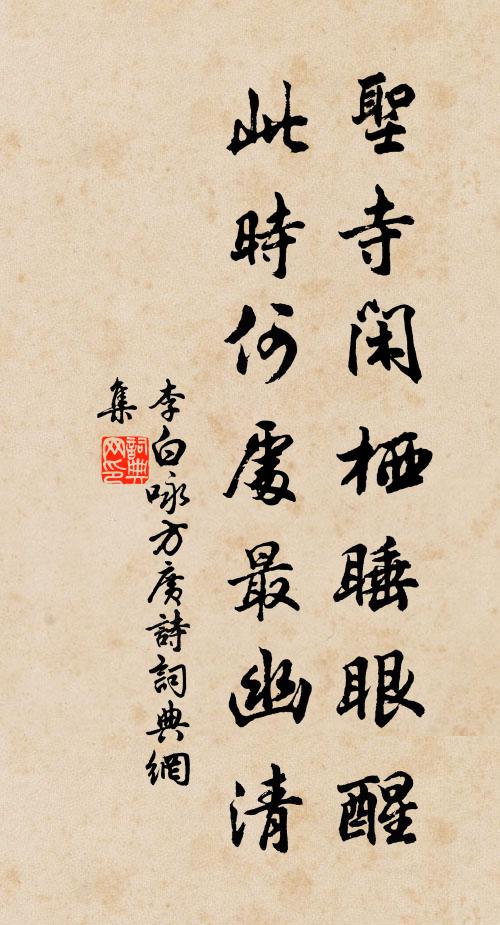 聖寺閑栖睡眼醒
此時何處最幽清
李白咏方廣詩詞典網
集
詞典網印